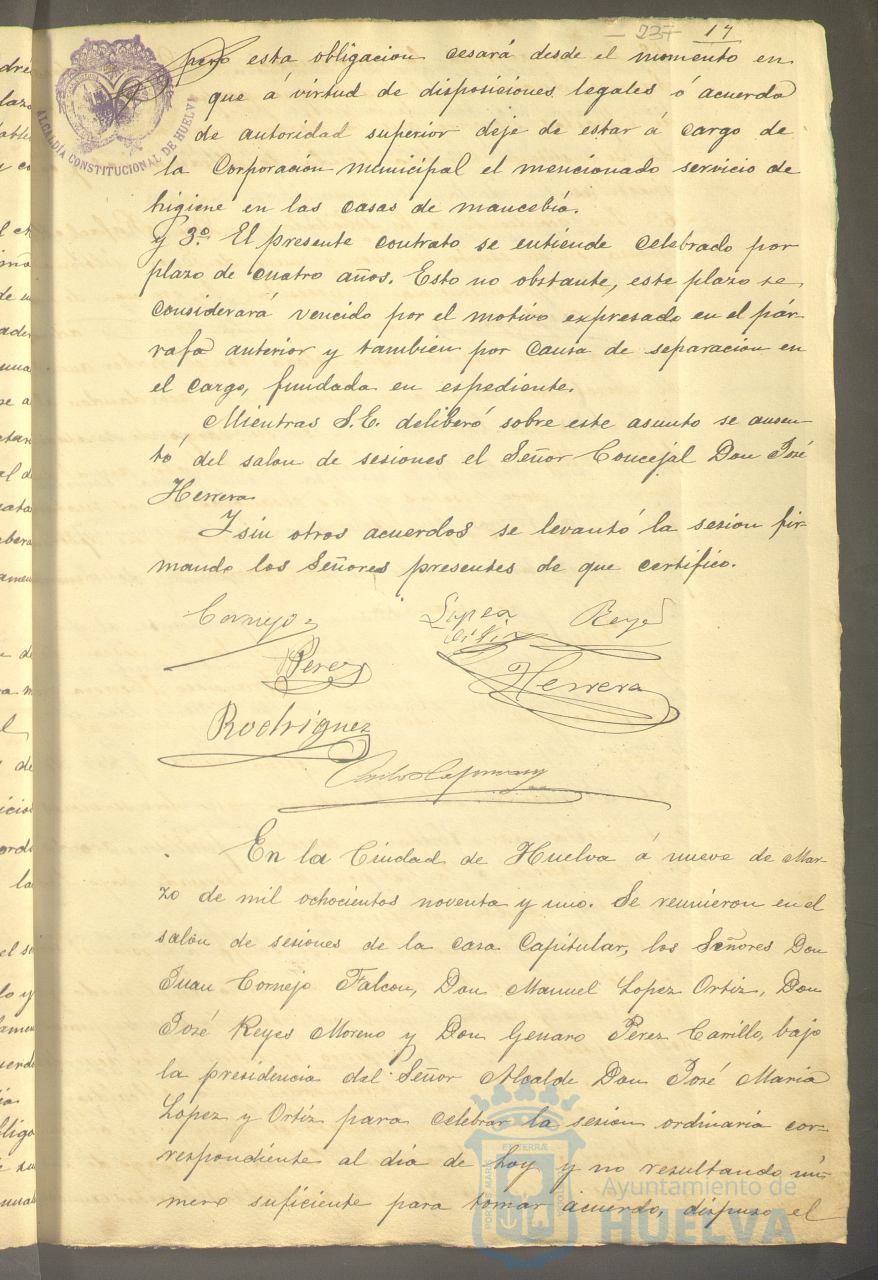 17
pero esta obligacion cesará desde el momento en
que á virtud de disposiciones legales ó acuerdo
de autoridad superior deje de estar á cargo de
la Corporacion municipal el mencionado servicio de
higiene en las casas de mancebía.
y 3º El presente contrato se entiende celebrado por
plazo de cuatro años. Esto no obstante, este plazo se
considerará vencido por el motivo expresado en el pár-
rafo anterior y tambien por causa de separacion en
el cargo, fundada en espediente.
Mientras S.E. deliberó sobre este asunto se ausen-
tó del salon de sesiones el Señor Concejal Don José
Herrera
Y sin otros acuerdos se levantó la sesion fir-
mando los Señores presentes de que certifico.
Cornejo
Lopez
Ortiz
Reyes
Perez
Herrera
Rodriguez
En la Ciudad de Huelva á nueve de Mar-
zo de mil ochocientos noventa y uno. Se reunieron en el
salon de sesiones de la casa Capitular, los Señores Don
Juan Cornejo Falcon, Don Manuel Lopez Ortiz, Don
José Reyes Moreno y Don Genaro Perez Carillo, bajo
la presidencia del Señor Alcalde Don José Maria
Lopez y Ortiz para celebrar la sesion ordinaria cor-
respondiente al dia de hoy y no resultando nú-
mero suficiente para tomar acuerdo, dispuso el
ALCALDÍA CONSTITUCIONAL DE HUELVA
Ayuntamiento de
HUELVA